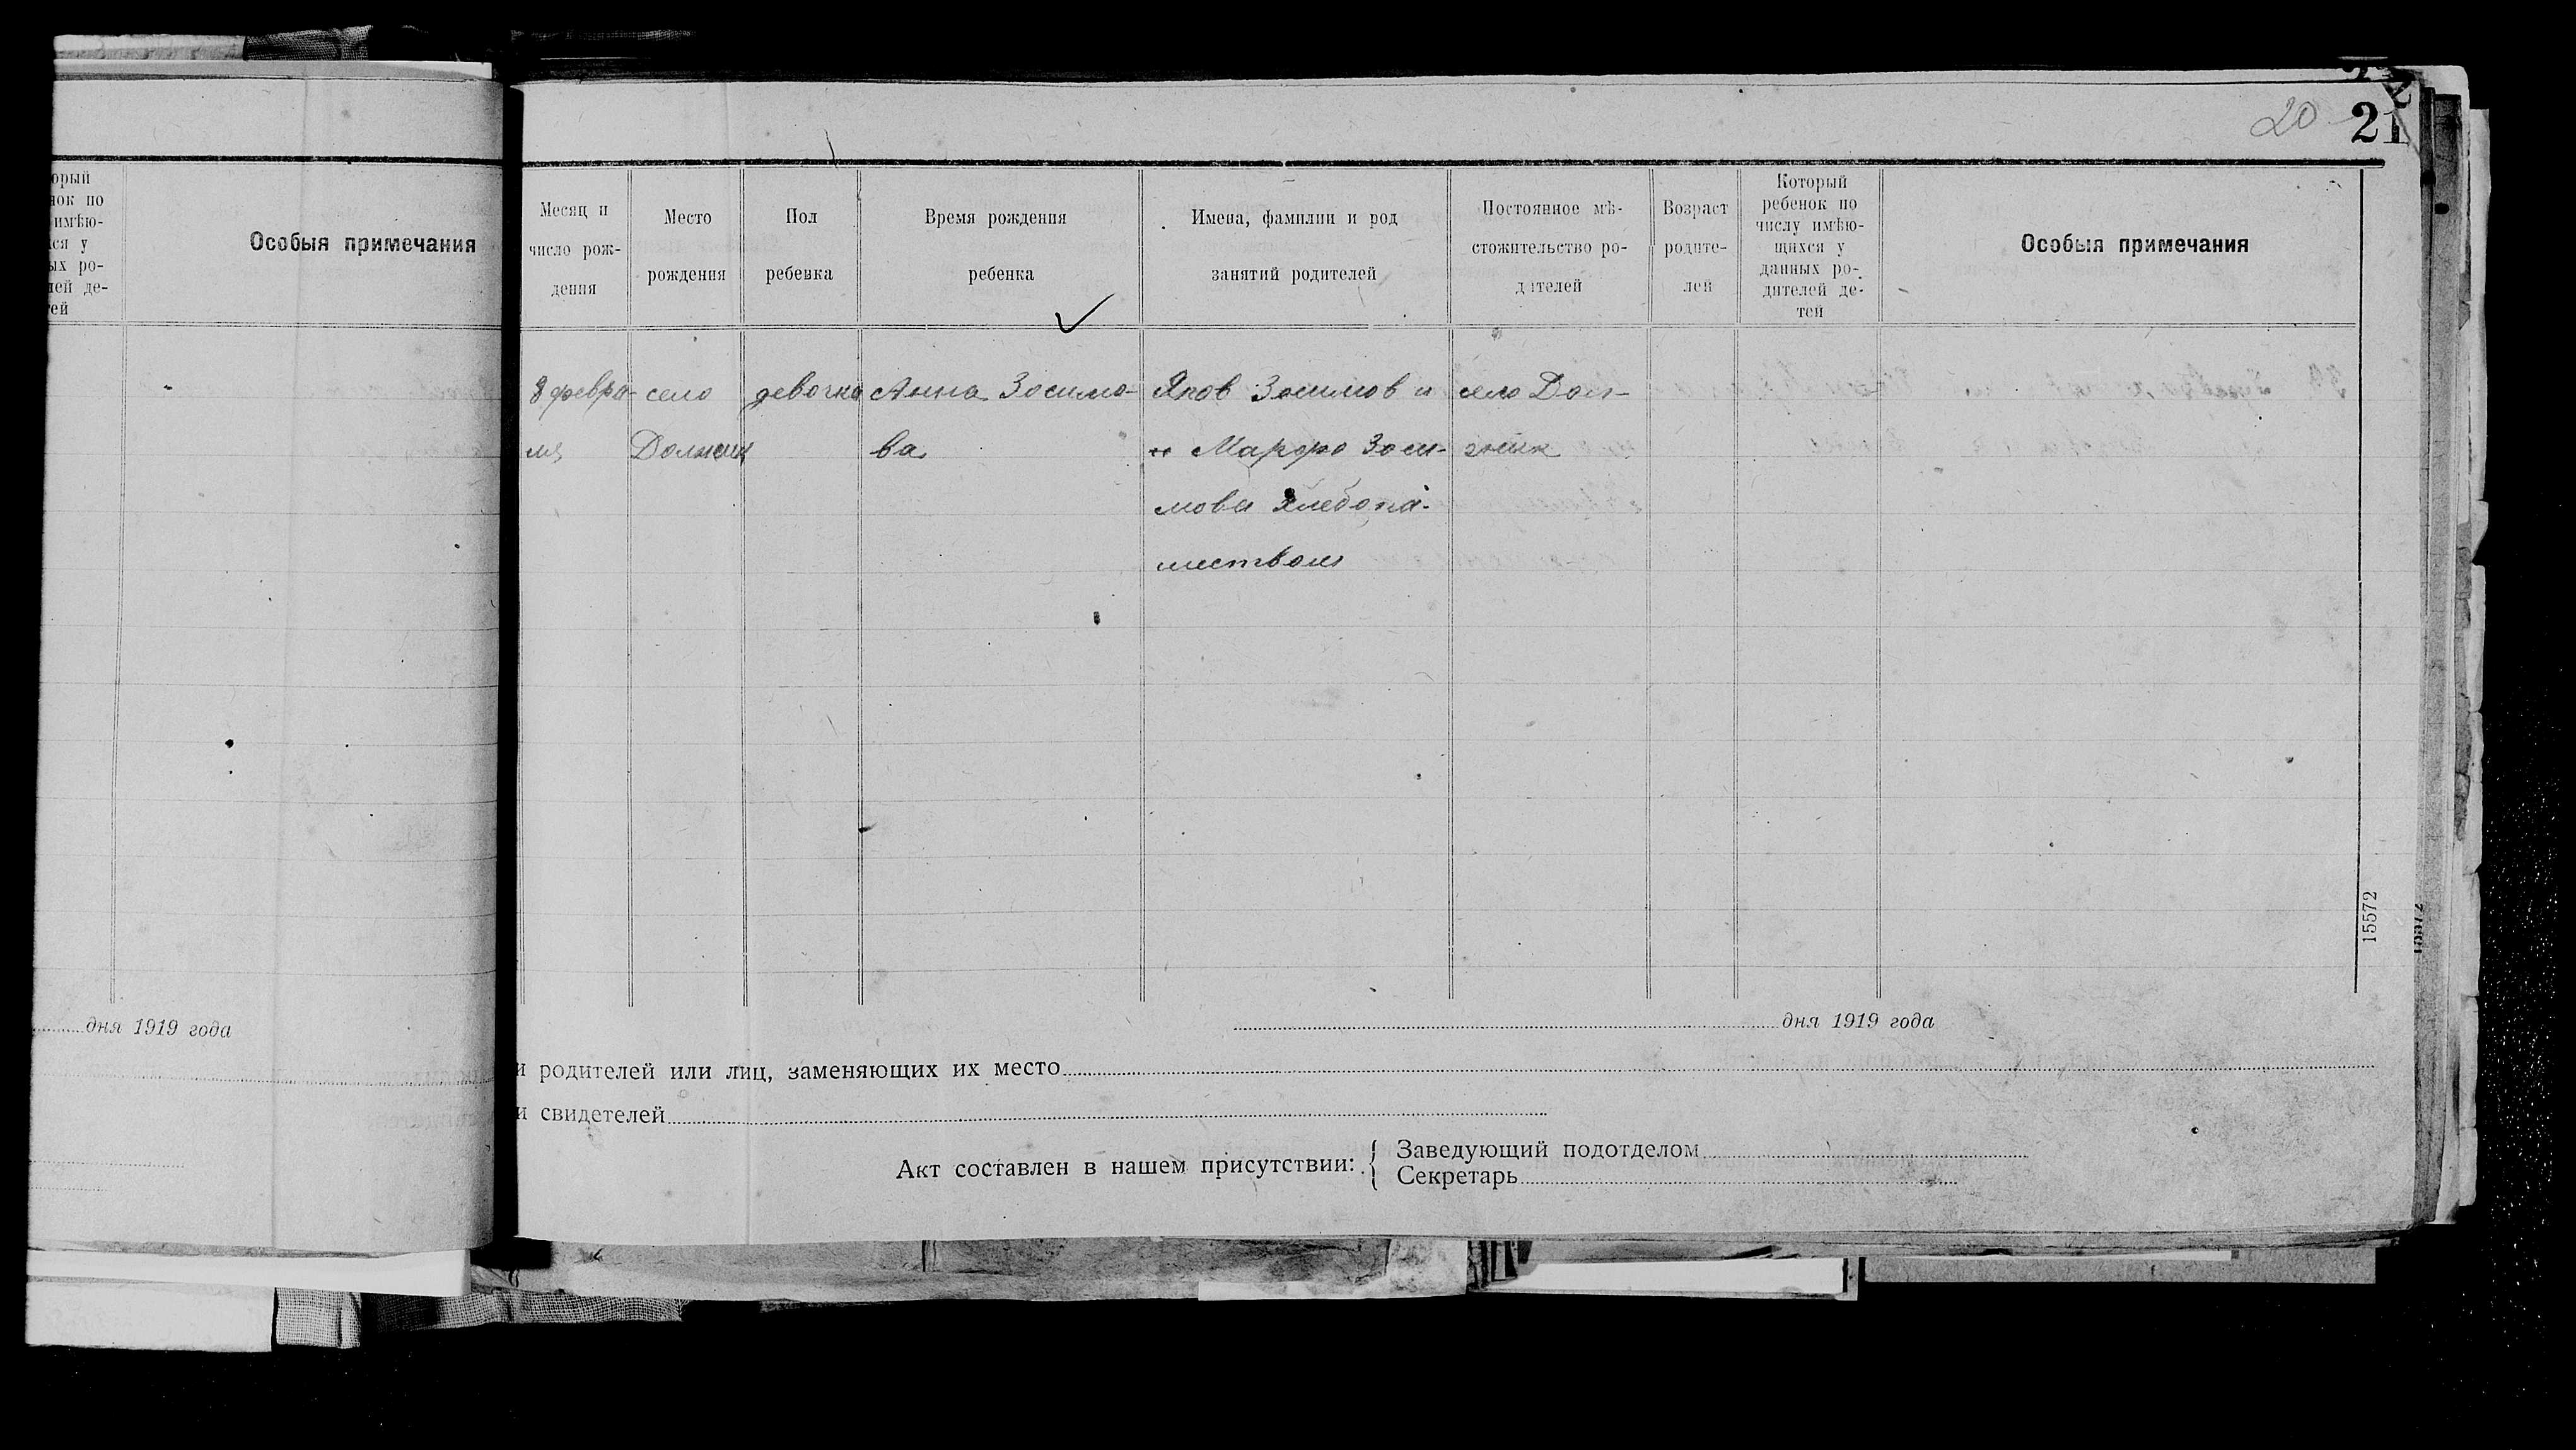 орый
нок по
имѣю-
ся у
ых ро-
лей де-
тей
Особыя примечания
дня 1919 года
20
21
Месяц и
число рож-
дения
Место
рождения
Пол
ребенка
Время рождения
ребенка
Имена, фамилии и род
занятий родителей
Постоянное мѣ-
стожительство ро-
дителей
Возраст
родите-
лей
Который
ребенок по
числу имѣю-
щихся у
данных ро-
дителей де-
тей
Особыя примечания
8 февра-
ля
село
Должик
девочка
Анна Зосимо-
ва
Яков Зосимов и
и Марфа Зоси-
мова хлебопа-
шеством
село Дол-
жик
15572
15572
дня 1919 года
и родителей или лиц, заменяющих их место
и свидетелей
Акт составлен в нашем присутствии:
Заведующий подотделом
Секретарь